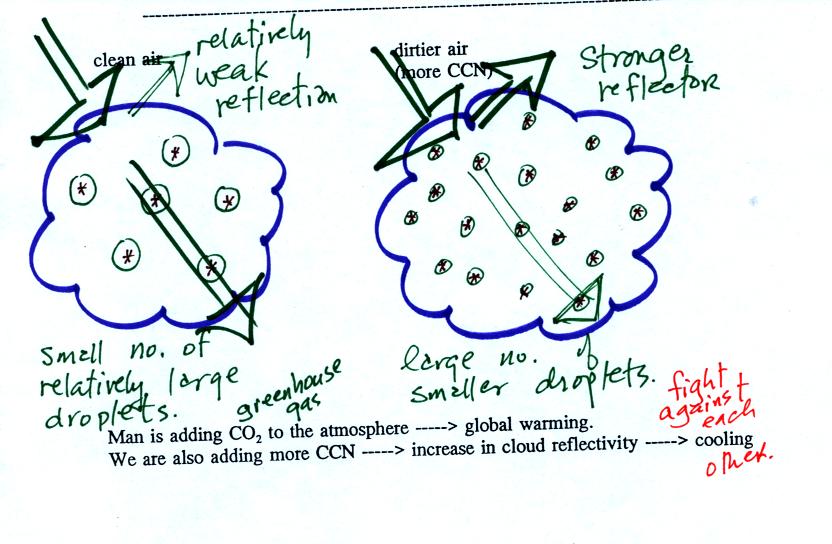 clean air
relatively
weak
reflection
dirtier air
(more CCN)
Stronger
reflector
Small no. of
relatively large
droplets.
large no. of
smaller droplets.
greenhouse
gas
Man is adding CO₂ to the atmosphere -----> global warming.
We are also adding more CCN -----> increase in cloud reflectivity -----> cooling
fight
against
each
other.